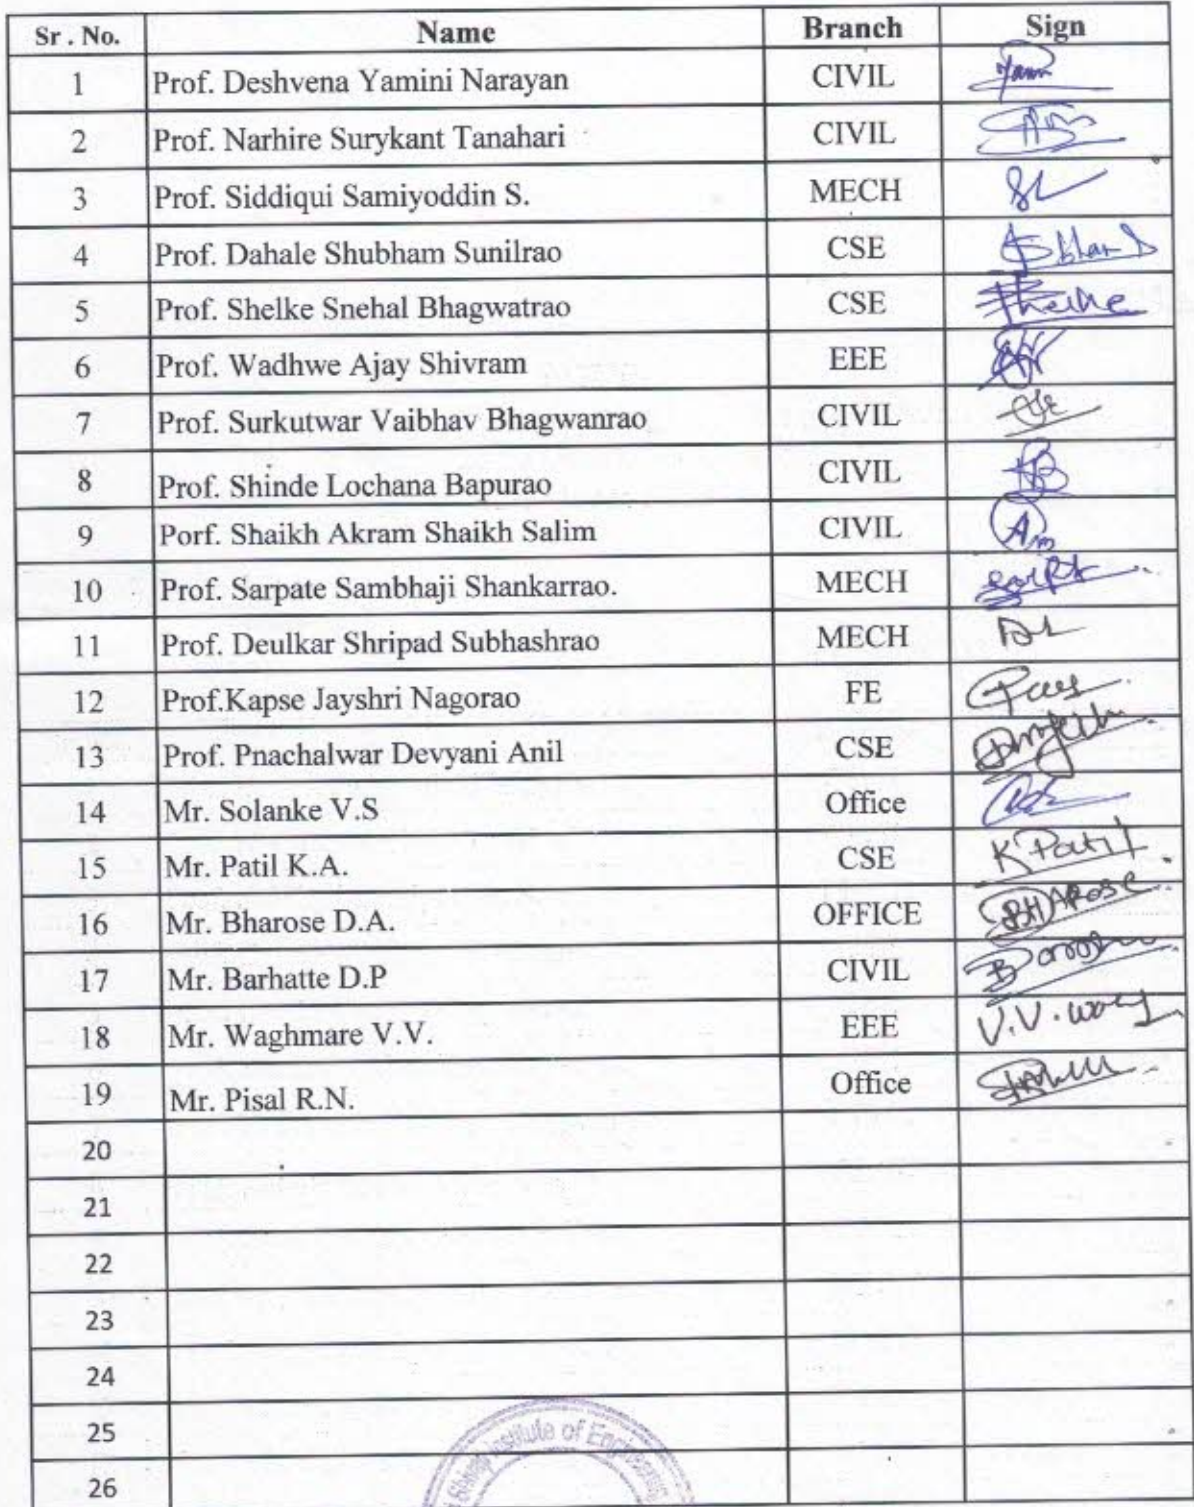 Sr . No. Name Branch Sign
1 Prof. Deshvena Yamini Narayan CIVIL
2 Prof. Narhire Surykant Tanahari CIVIL
3 Prof. Siddiqui Samiyoddin S. MECH
4 Prof. Dahale Shubham Sunilrao CSE
5 Prof. Shelke Snehal Bhagwatrao CSE
6 Prof. Wadhwe Ajay Shivram EEE
7 Prof. Surkutwar Vaibhav Bhagwanrao CIVIL
8 Prof. Shinde Lochana Bapurao CIVIL
9 Porf. Shaikh Akram Shaikh Salim CIVIL
10 Prof. Sarpate Sambhaji Shankarrao. MECH
11 Prof. Deulkar Shripad Subhashrao MECH
12 Prof.Kapse Jayshri Nagorao FE
13 Prof. Pnachalwar Devyani Anil CSE
14 Mr. Solanke V.S Office
15 Mr. Patil K.A. CSE K Patil
16 Mr. Bharose D.A. OFFICE BHAROSE
17 Mr. Barhatte D.P CIVIL
18 Mr. Waghmare V.V. EEE V.V.
19 Mr. Pisal R.N. Office
20
21
22
23
24
25
26
Institute of